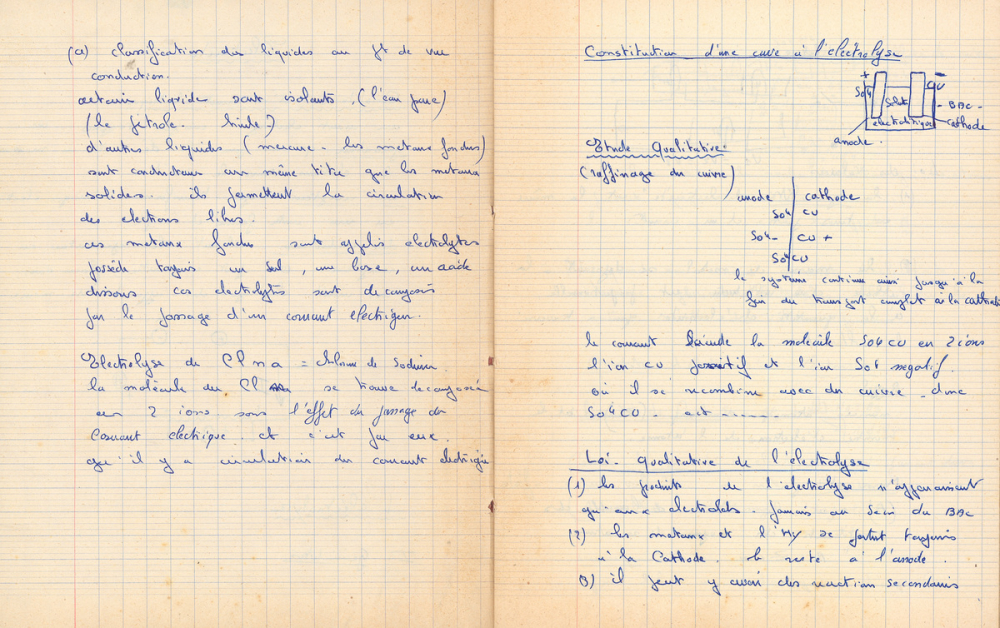 (a) Classification des liquides au pt de vue
conduction.
certain liquide sont isolants, (l'eau pure)
(le pétrole. huile)
d'autres liquides (mercure - les metaux fondus)
sont conducteurs au même titre que les metaux
solides. ils permettent la circulation
des electrons libres.
ces metaux fondus sont appelés electrolytes
possède toujours un sel, une base, un acide
dissous ces electrolytes sont decomposés
par le passage d'un courant electrique.
Electrolyse de Cl na = chlorure de Sodium
la molécule du Cl na se trouve decomposée
en 2 ions sous l'effet du passage du
Courant electrique. et c'est par eux.
qu'il y a circulation du courant electrique
Constitution d'une cuve à l'électrolyse
+ -
So4 CU
Solut
electrolitique
- BAC -
cathode
anode.
Etude Qualitative:
(raffinage du cuivre)
anode cathode
So4 CU
So4- CU +
So4 CU
le système continue ainsi jusqu'à la
fin du transport complet à la cathode
le courant scinde la molécule So4 CU en 2 ions
l'ion CU positif et l'ion So4 negatif.
où il se recombine avec du cuivre - donc
So4 CU - ect -------
Loi - qualitative de l'électrolyse
(1) les produits de l'electrolyse n'apparaissent
qu'aux electrodes. jamais au sein du BAc
(2) les metaux et l'Hy se portent toujours
à la Cathode. le reste à l'anode.
3) il peut y avoir des reaction secondaires